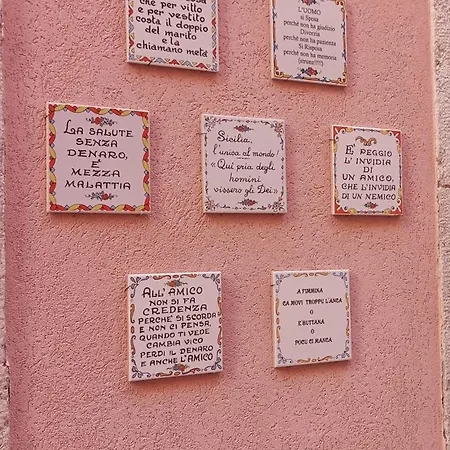 che per vitto
e per vestito
costa il doppio
del marito
e la
chiamano metà
L'UOMO
si Sposa
perché non ha giudizio
Divorzia
perché non ha pazienza
Si Risposa
perché non ha memoria
LA SALUTE
SENZA
DENARO,
E'
MEZZA
MALATTIA
Sicilia,
l'unica al mondo!
«Qui pria degli
homini
vissero gli Dei»
E' PEGGIO
L'INVIDIA
DI UN
AMICO,
CHE L'INVIDIA
DI UN NEMICO
ALL'AMICO
NON SI FA
CREDENZA
PERCHE' SI SCORDA
E NON CI PENSA,
QUANDO TI VEDE
CAMBIA VICO
PERDI IL DENARO
E ANCHE L'AMICO
A FIMMINA
CA MOVI TROPPU L'ANCA
O
E' BUTTANA
O
POCU CI MANCA